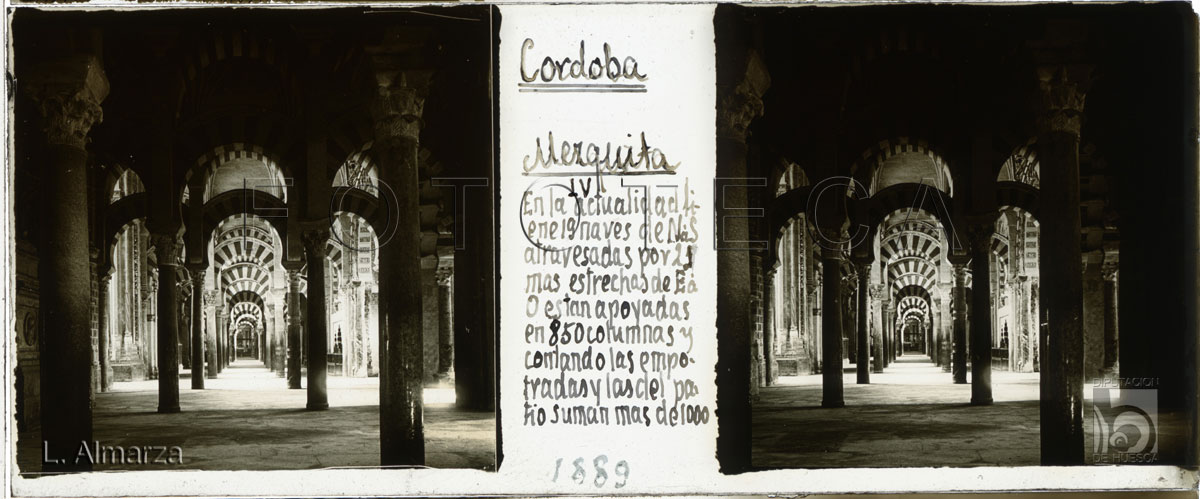 Cordoba
Mezquita
IV
En la actualidad ti
ene 19 naves de N a S
atravesadas por 2
mas estrechas de E a
O estan apoyadas
en 850 columnas y
contando las empo-
tradas y las del pa
tio suman mas de 1000
1889
FOTOTECA
L. Almarza
DIPUTACION
DE HUESCA